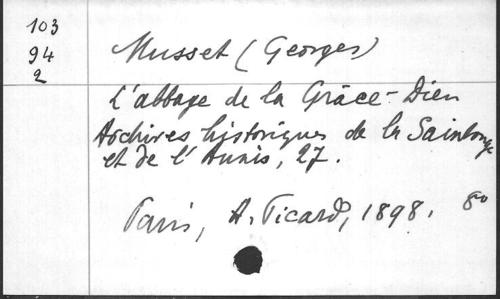 103
94
2
Musset (Georges)
L'abbaye de la Grâce-Dieu
Archives historiques de la Saintonge
et de l'Aunis, 27.
Paris, A. Picard, 1898. 8º